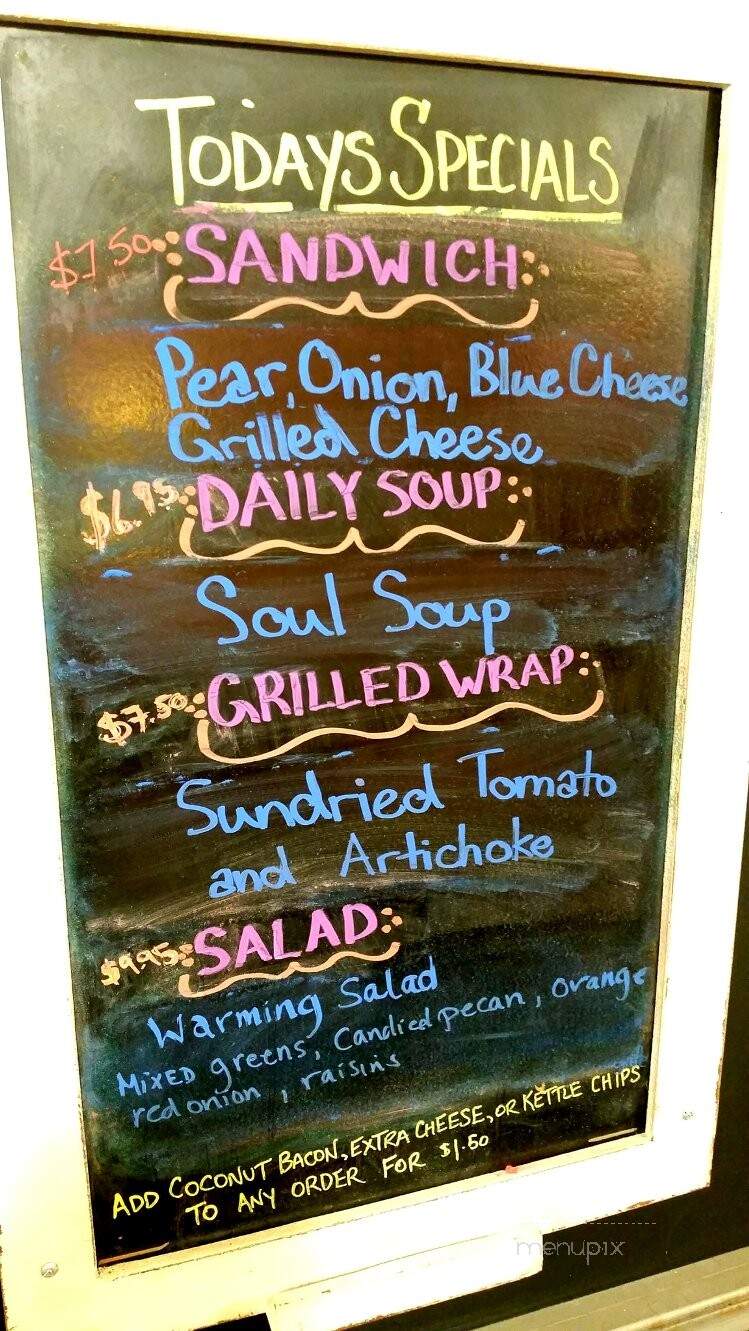 TODAYS SPECIALS
$7.50 SANDWICH
Pear, Onion, Blue Cheese
Grilled Cheese
$6.95 DAILY SOUP
Soul Soup
$7.50 GRILLED WRAP
Sundried Tomato
and Artichoke
$9.95 SALAD
Warming Salad
MIXED greens, Candied pecan, orange
red onion, raisins
ADD COCONUT BACON, EXTRA CHEESE, OR KETTLE CHIPS
TO ANY ORDER FOR $1.50
menupix